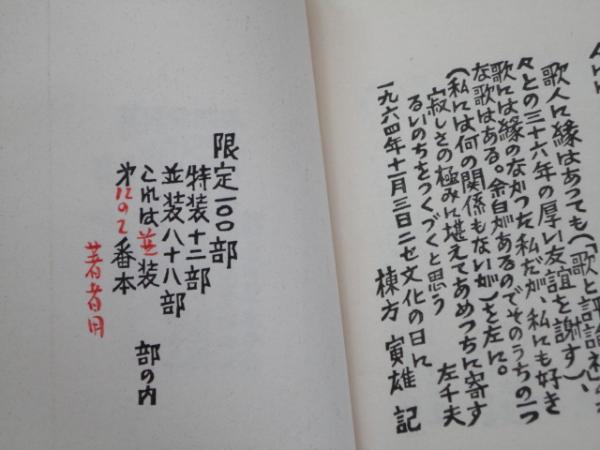 歌人に縁はあっても(「歌と評論社の
々との三十六年の厚い友誼を謝す)、
歌には縁のなかった私だが、私にも好き
な歌はある。余白があるのでそのうちの一つ
(私には何の関係もないが)を左に。
寂しさの極みに堪えてあめつちに寄す
るいのちをつくづくと思う　左千夫
一九六四年十一月三日ニセ文化の日に
棟方 寅雄 記
限定一〇〇部
特装十二部
並装八十八部
これは並装 部の内
才12の2番本
著者用